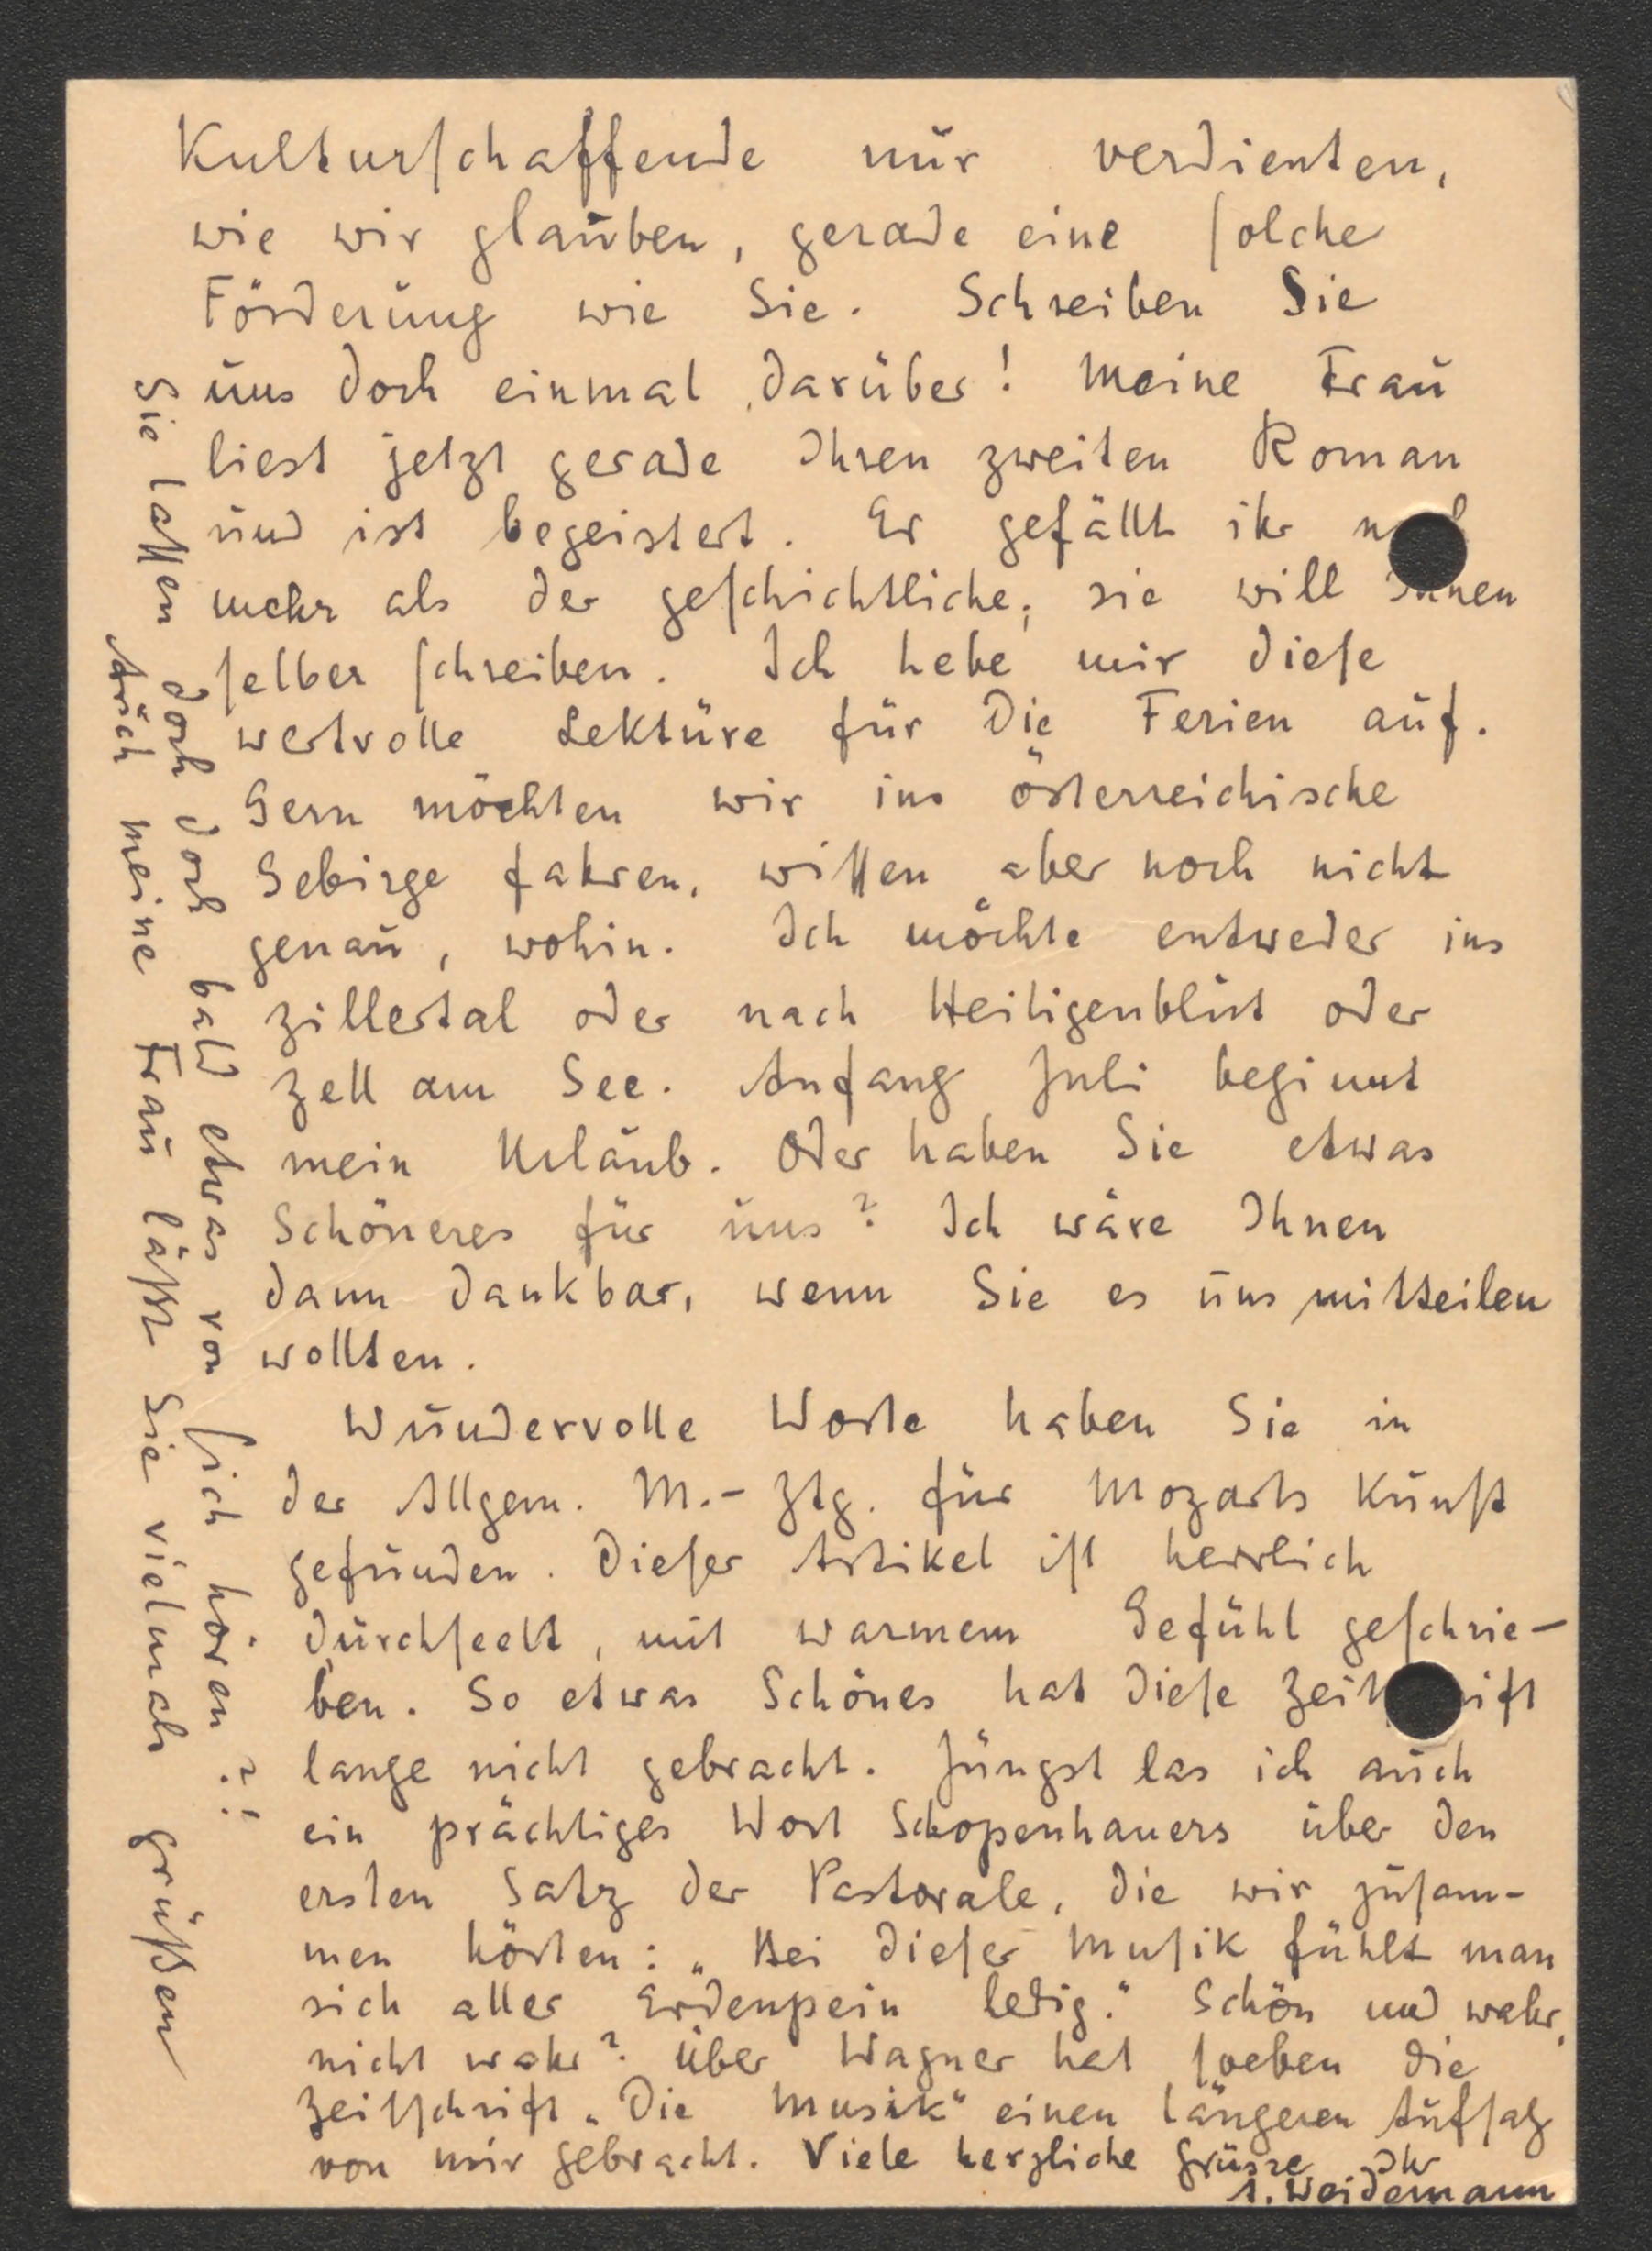 Kulturschaffende nur verdienten,
wie wir glauben, gerade eine solche
Förderung wie Sie. Schreiben Sie
uns doch einmal darüber! Meine Frau
liest jetzt gerade Ihren zweiten Roman
und ist begeistert. Er gefällt ihr noch
mehr als der geschichtliche; sie will Ihnen
selber schreiben. Ich hebe mir diese
wertvolle Lektüre für die Ferien auf.
Gern möchten wir ins österreichische
Gebirge fahren, wissen aber noch nicht
genau, wohin. Ich möchte entweder ins
Zillertal oder nach Heiligenblut oder
Zell am See. Anfang Juli beginnt
mein Urlaub. Oder haben Sie etwas
Schöneres für uns? Ich wäre Ihnen
dann dankbar, wenn Sie es uns mitteilen
wollten.
Wundervolle Worte haben Sie in
der Allgem. M.-Ztg. für Mozarts Kunst
gefunden. Dieser Artikel ist herrlich
durchseelt, mit warmem Gefühl geschrie-
ben. So etwas Schönes hat diese Zeitschrift
lange nicht gebracht. Jüngst las ich auch
ein prächtiges Wort Schopenhauers über den
ersten Satz der Pastorale, die wir zusam-
men hörten: „Bei dieser Musik fühlt man
sich aller Erdenpein ledig." Schön und wahr,
nicht wahr? Über Wagner hat soeben die
Zeitschrift „Die Musik" einen längeren Aufsatz
von mir gebracht. Viele herzliche Grüsse Ihr
A. Weidemann
Sie lassen doch doch bald etwas von sich hören?!
Auch meine Frau läßt Sie vielmals grüßen